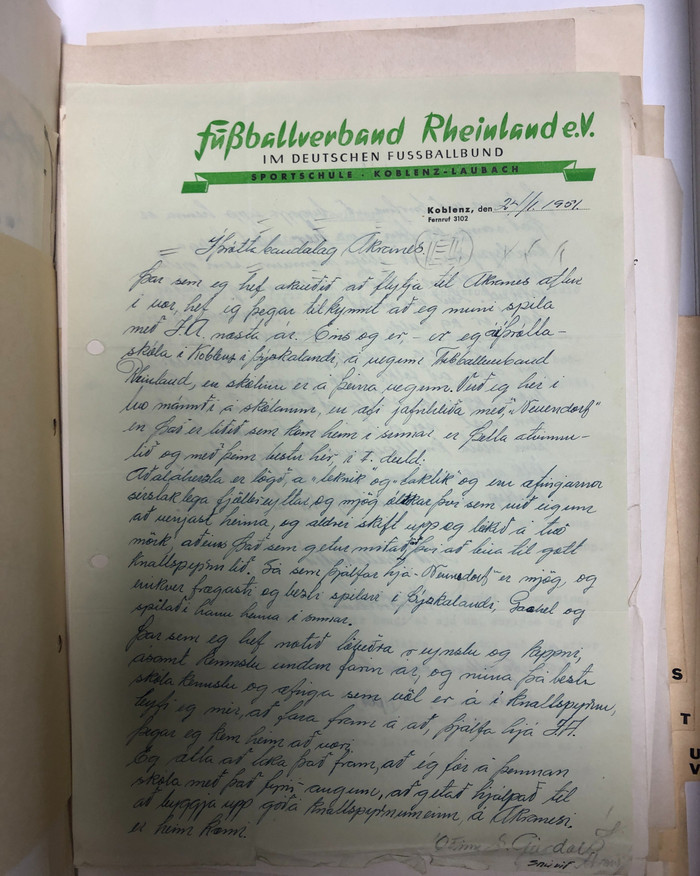 Fußballverband Rheinland e.V.
IM DEUTSCHEN FUSSBALLBUND
SPORTSCHULE · KOBLENZ-LAUBACH
Koblenz, den 24/1. 1951.
Fernruf 3102
Íþróttabandalag Akranes.
Þar sem eg hef ákveðið að flytja til Akranes aftur
í vor, hef ég þegar tilkynnt að eg muni spila
með Í.A. næsta ár. Eins og er, - er eg á íþrótta-
skóla í Koblenz í Þýskalandi, á vegum Fussballverband
Rheinland, en skólinn er á þeirra vegum. Verð eg hér í
tvo mánuði á skólanum, en æfi jafnhliða með "Neuendorf"
en það er liðið sem kom heim í sumar, er þetta atvinnu-
lið og með þeim bestu hér, í I. deild.
Aðaláherzla er lögð, á "teknik" og "taktik" og eru æfingarnar
serstaklega fjölbreyttar, og mjög ólíkar því sem við eigum
að venjast heima, og aldrei skift upp og leikið á tvö
mörk, aðeins það sem getur miðað því að búa til gott
knattspyrnulið. Sá sem þjálfar hjá "Neuendorf" er mjög, og
einhver frægasti og bezti spilari í Þýskalandi, Gauchel og
spilaði hann heima í sumar.
Þar sem eg hef notið reynslu og keppni,
ásamt kennslu undan farin ár, og núna þá bestu
skóla kennslu og æfinga sem völ er á í knattspyrnu,
leyfi eg mér, að fara fram á að, þjálfa hjá Í.A.
þegar eg kem heim að vori.
Eg ætla að taka það fram, að ég fór á þennan
skóla með það fyrir augum, að getað hjálpað til
að byggja upp góða knattspyrnumenn á Akranesi,
er heim kæmi.
S
T
U
V